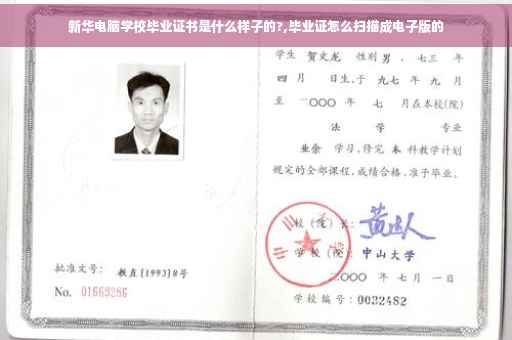 新华电脑学校毕业证书是什么样子的?,毕业证怎么扫描成电子版的
学生 贺文龙 性别 男 、七三 年
四 月 日生,于 九七 年 九 月
至 二〇〇〇 年 七 月在本校(院)
法 学 专业
业余 学习,修完 本 科教学计划
规定的全部课程,成绩合格,准予毕业。
校(院)长:
学校(院): 中山大学
二〇〇〇 年 七 月 一 日
批准文号: 教直(1993)8号
No. 01669286
学校编号: 0032482